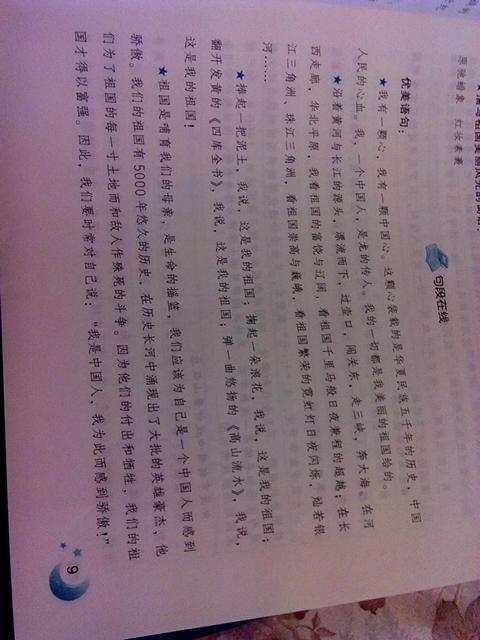 原驰蜡象 红妆素裹
句段在线
优美语句：
★我有一颗心，我有一颗中国心。这颗心装载的是华夏民族五千年的历史，中国
人民的心血。我，一个中国人，是龙的传人。我的一切都是我美丽的祖国给的。
★沿着黄河与长江的源头，漂流而下，过壶口，闯关东，走三峡，奔大海。在河
西走廊，华北平原，我看祖国的富饶与辽阔，看祖国千里马般日夜兼程的超越；在长
江三角洲、珠江三角洲，看祖国崇高与巍峨，看祖国繁荣的霓虹灯日夜闪烁，灿若银
河……
★捧起一把泥土，我说，这是我的祖国；掬起一朵浪花，我说，这是我的祖国；
翻开发黄的《四库全书》，我说，这是我的祖国；弹一曲悠扬的《高山流水》，我说，
这是我的祖国！
★祖国是哺育我们的母亲，是生命的摇篮，我们应该为自己是一个中国人而感到
骄傲。我们的祖国有5000年悠久的历史，在历史长河中涌现出了大批的英雄豪杰，他
们为了祖国的每一寸土地而和敌人作殊死的斗争。因为他们的付出和牺牲，我们的祖
国才得以富强。因此，我们要时常对自己说：“我是中国人，我为此而感到骄傲！”
9